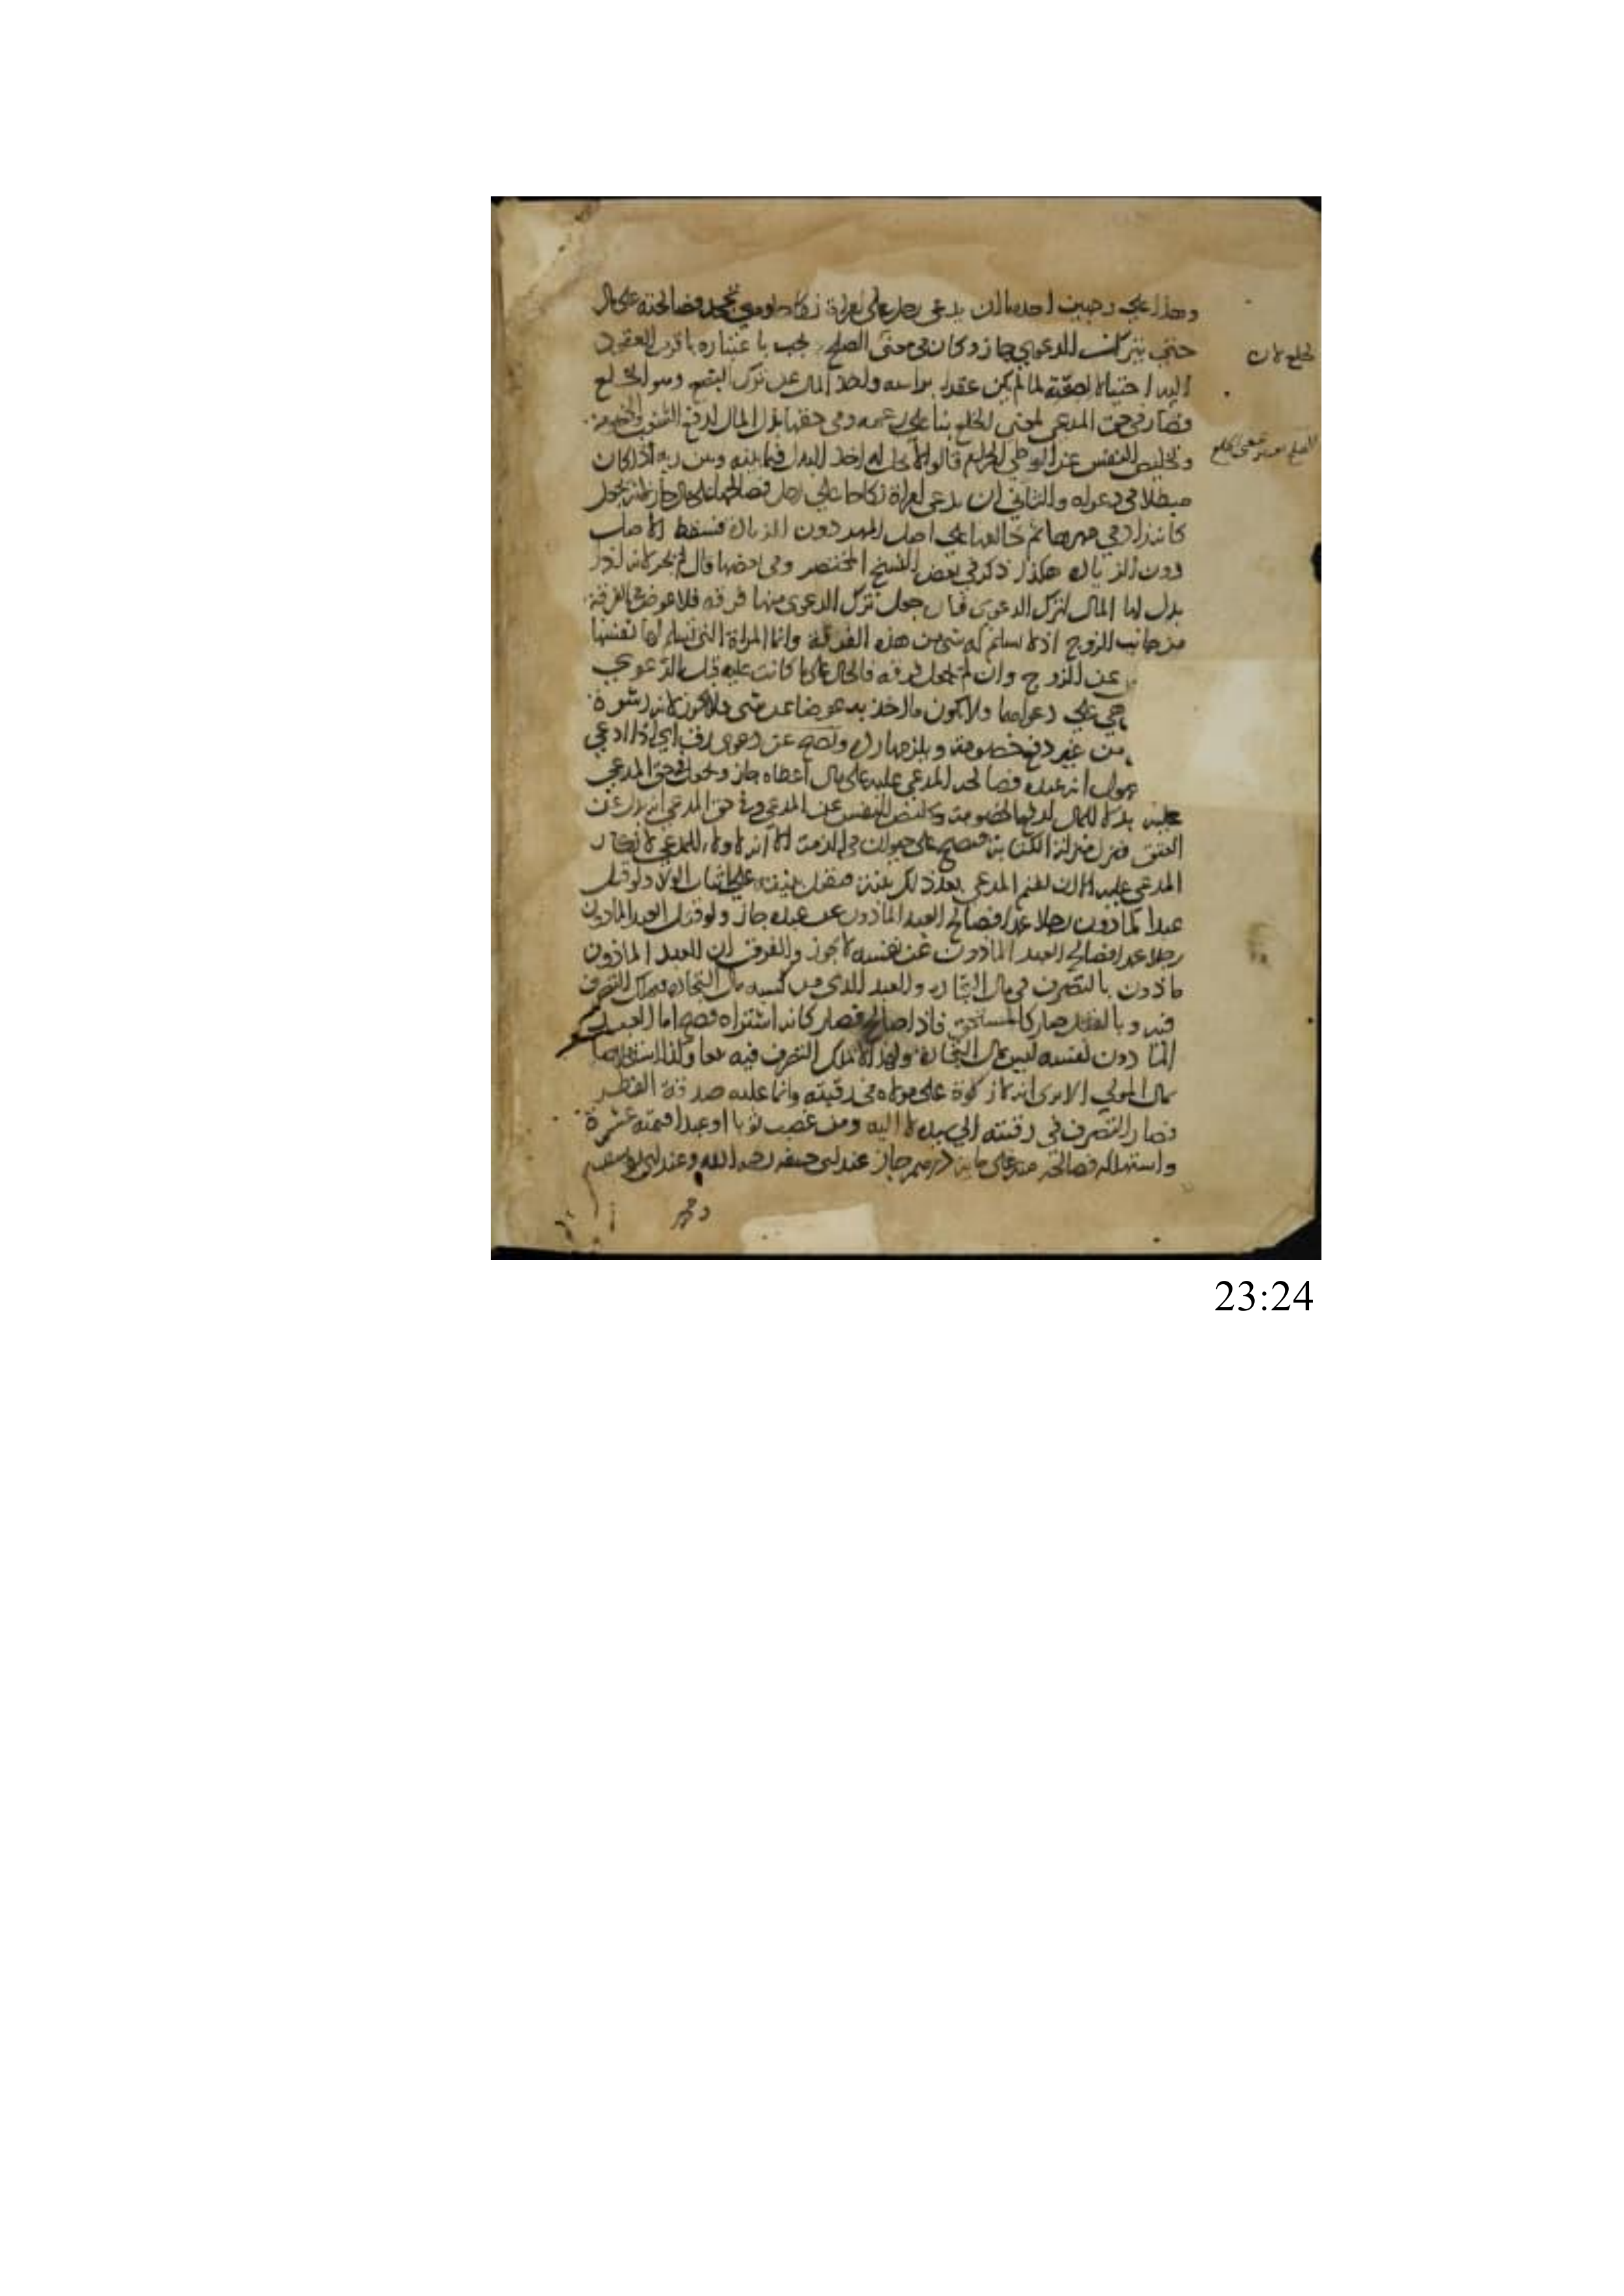 وهذا علي وجهين احدهما ان يدعي رجل علي امراة نكاحا وهي تجحد فصالحته على مال
حتي يترك الدعوي جاز وكان في معنى الصلح يجب باعتباره باقرب العقود
الخلع لان
اليه احتيالا لصحته لما لم يكن عقدا براسه واخذ المال عن ترك البضع وهو الخلع
فصار في حق المدعي لمعني الخلع بناء علي زعمه وفي حقها بذل المال لدفع الشغب والخصومة
وتخليص النفس عن الوطي الحرام قالوا لا يحل له اخذ البدل فيما بينه وبين ربه اذا كان
مبطلا في دعواه والثاني ان يدعي امراة نكاحا علي رجل فصالحها على مال جاز لانه يجعل
كانه زاد في مهرها ثم خالعها علي اصل المهر دون الزيادة فسقط الاصل
دون الزيادة هكذا ذكر في بعض النسخ المختصر وفي بعضها قال لم يجز لانه اذا
بذل لها المال لترك الدعوى فان جعل ترك الدعوى منها فرقة فلا عوض في الفرقة
من جانب الزوج اذ لا يسلم له شي من هذه الفرقة وانما المراة التي تسلم لها نفسها
عن الزوج وان لم تجعل فرقة فالحال على ما كانت عليه قبل الدعوي
هي علي دعواها ولا يكون ما اخذ به عوضا عن شي فلا يجوز لانه رشوة
من غير دفع خصومة ويصح عن دعوى رق اي اذا ادعي
مجهول انه عبده فصالحه المدعي عليه على مال اعطاه جاز ويكون في حق المدعي
عليه بدلا للمال لدفع الخصومة وتخليص النفس عن المدعي وفي حق المدعي انه بدل عن
العتق فنزل منزلة الكتابة فيصح على حيوان في الذمة الا انه لا ولاء للمدعي لانكار
المدعي عليه الا ان يقيم المدعي بعد ذلك بينة فتقبل بينته علي اثبات الولاء ولو قتل
عبد المأذون رجلا عمدا فصالح العبد الماذون عن عبده جاز ولو قتل العبد الماذون
رجلا عمدا فصالح العبد الماذون عن نفسه لا يجوز والفرق ان العبد الماذون
ماذون بالتصرف في مال التجارة والعبد الذي من كسبه مال التجارة فيملك التصرف
فيه وبالقتل صار كالمستحق فاذا صالح فصار كانه اشتراه فصح اما العبد
الماذون لنفسه ليس مال التجارة ولهذا لا يملك التصرف فيه بيعا وكذا استخلاصا
بمال المولي الا يرى انه لا زكوة على مولاه في رقبته وانما عليه صدقة الفطر
فصار التصرف في رقبته الي سيده لا اليه ومن غصب ثوبا او عبدا قيمته عشرة
واستهلكه فصالحه منه على مائة درهم جاز عند ابي حنيفة رحمه الله وعند ابي يوسف
23:24